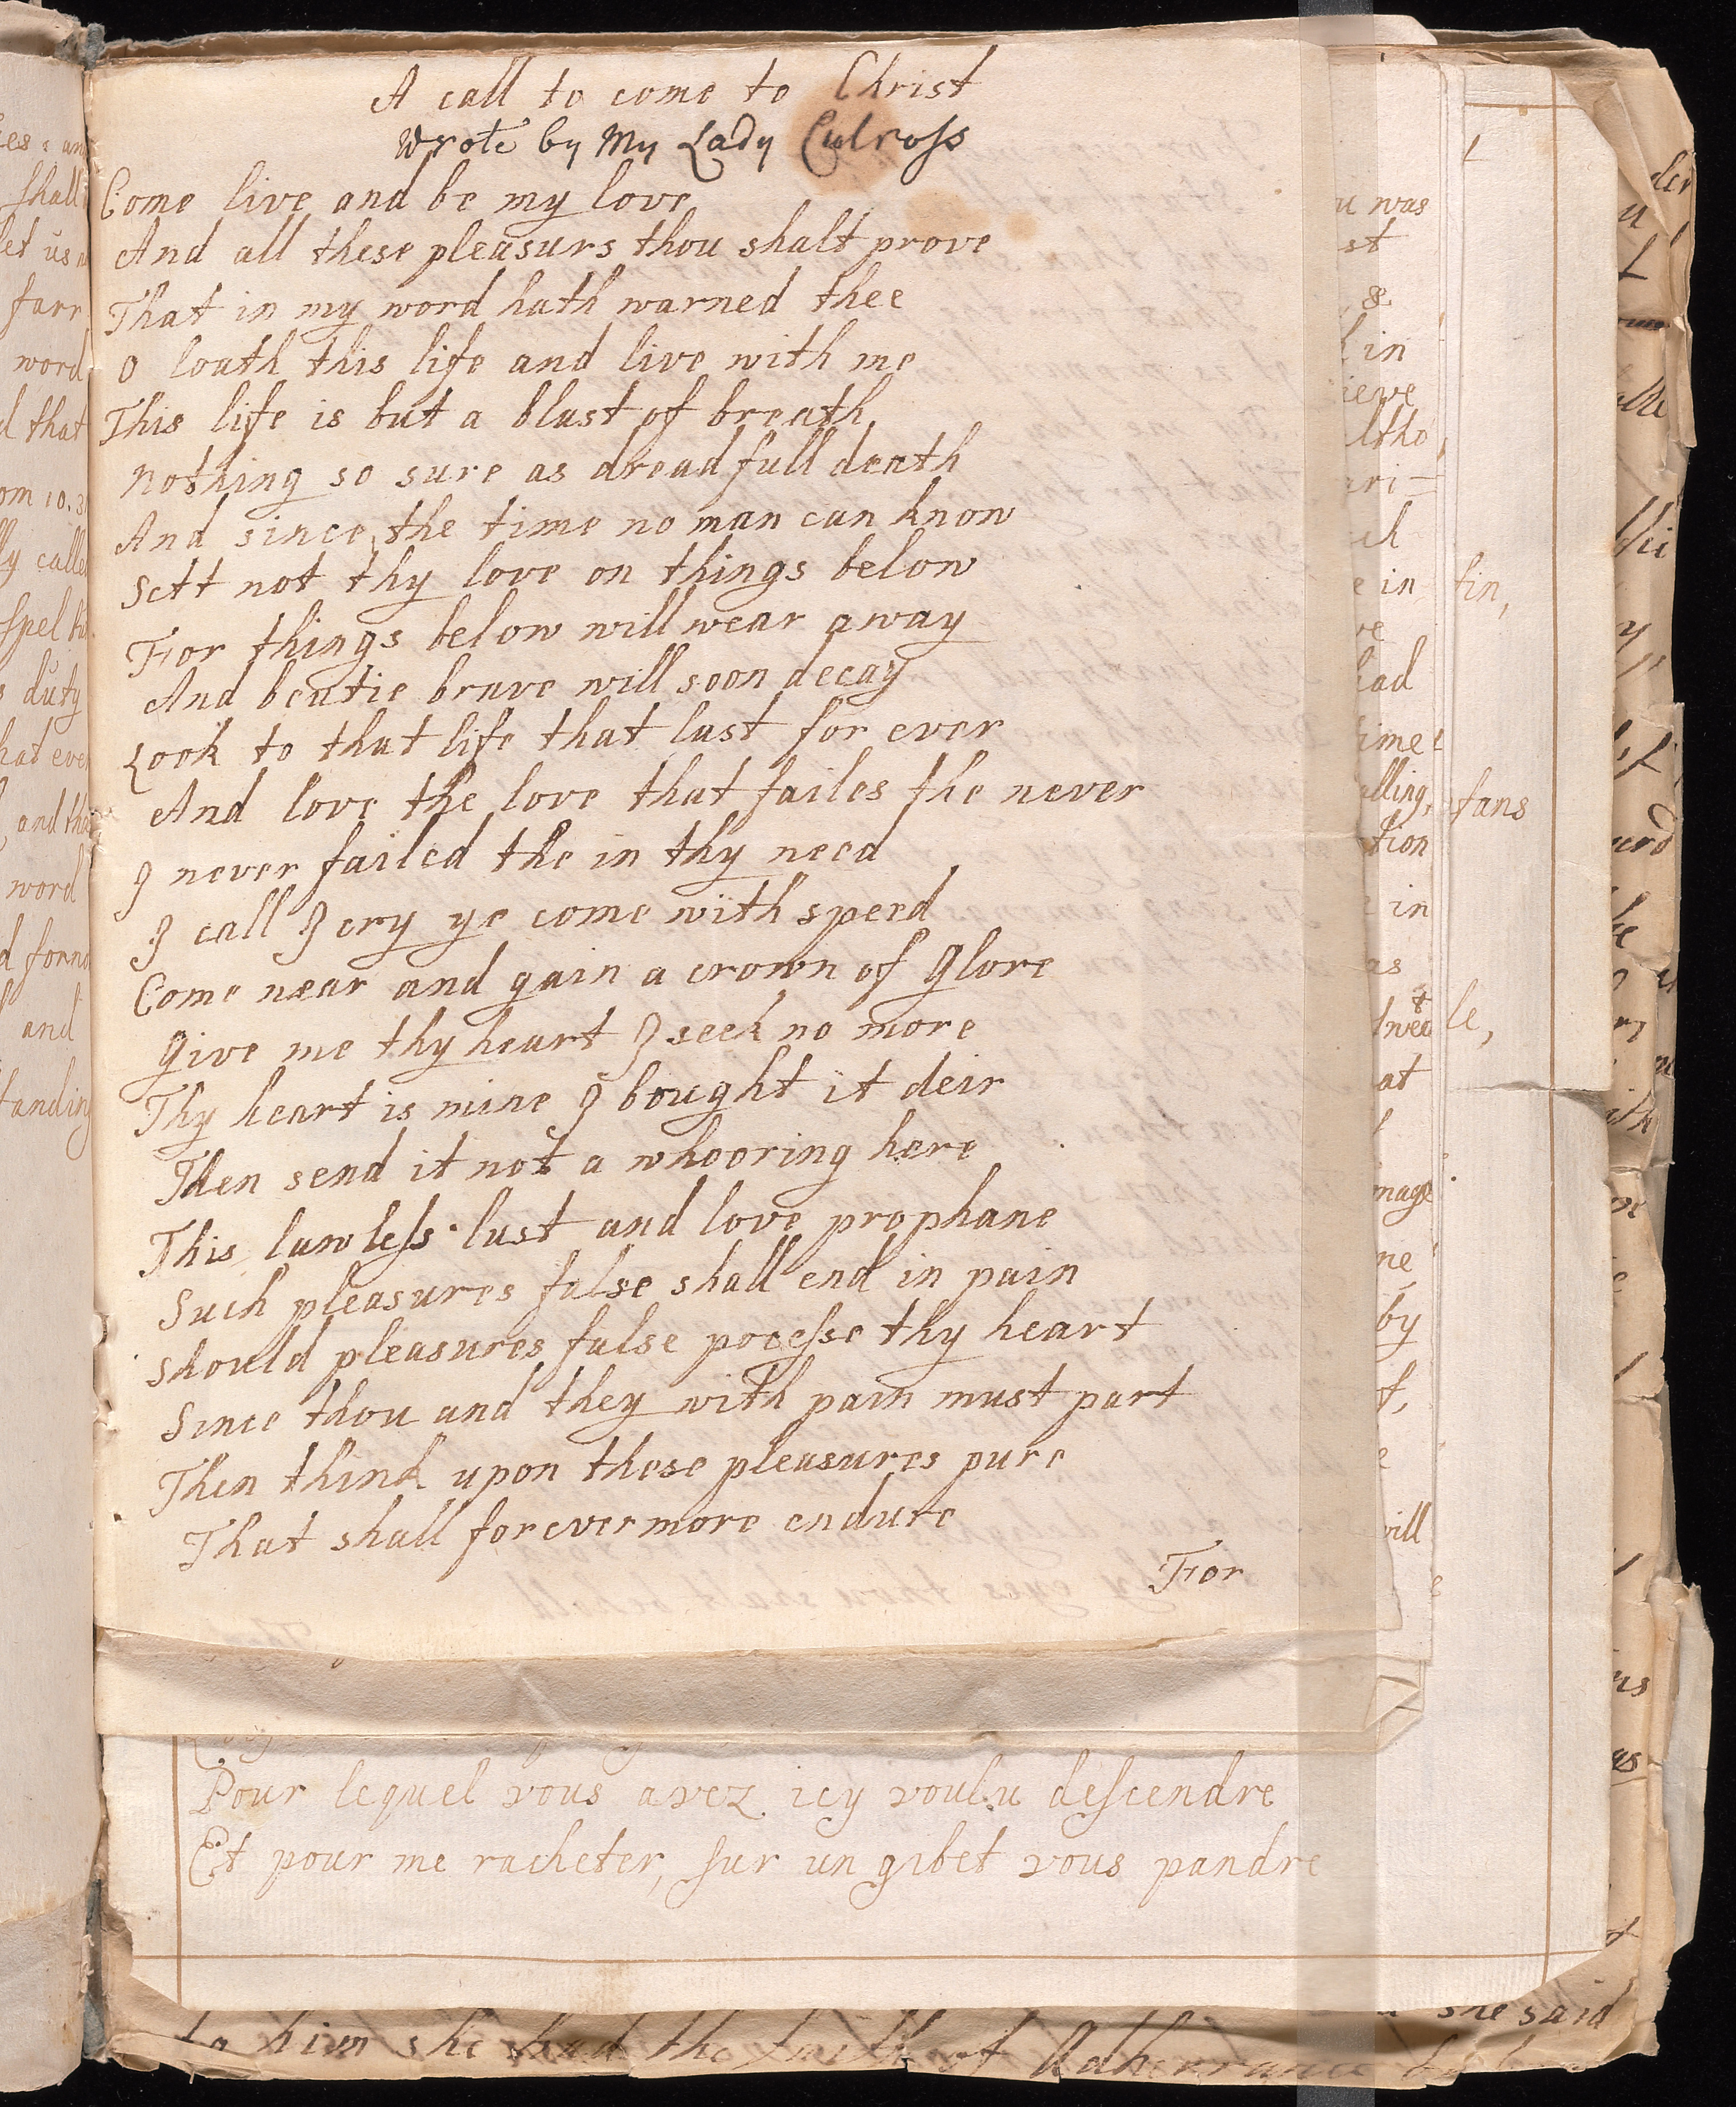 A call to come to Christ
Wrote by My Lady Culross
Come live and be my love
And all these pleasurs thou shalt prove
That in my word hath warned thee
O loath this life and live with me
This life is but a blast of breath
Nothing so sure as dreadfull death
And since the time no man can know
Sett not thy love on things below
For things below will wear away
And beutie brave will soon decay
Look to that life that last for ever
And love the love that failes the never
I never failed the in thy need
I call I cry ye come with speed
Come near and gain a crown of Glore
Give me thy heart I seek no more
Thy heart is mine I bought it deir
Then send it not a whooring here
This lawleſs lust and love prophane
Such pleasures false shall end in pain
Should pleasures false poceſse thy heart
Since thou and they with pain must part
Then think upon these pleasures pure
That shall forevermore endure
For
Pour lequel vous avez icy voulu deſcendre
Et pour me racheter, ſur un gibet vous pandre
she said
to him she had the faith of Adherrance